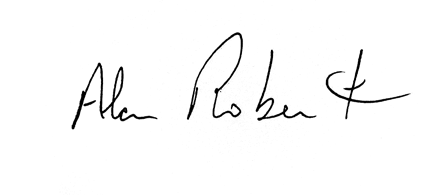 Alan Robert